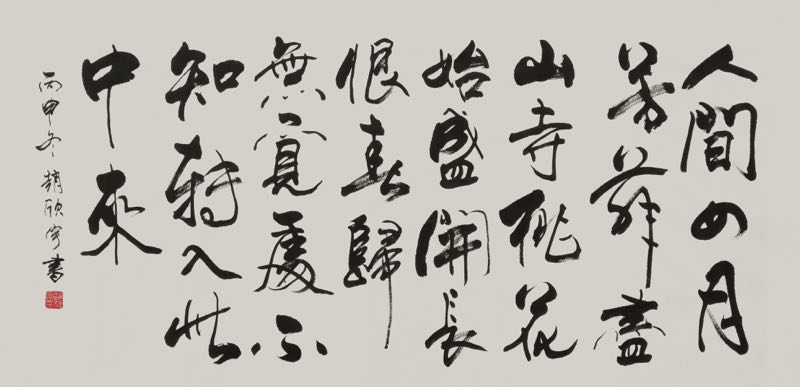 人間四月
芳菲盡
山寺桃花
始盛開長
恨春歸
無覓處不
知轉入此
中來
丙申冬趙書